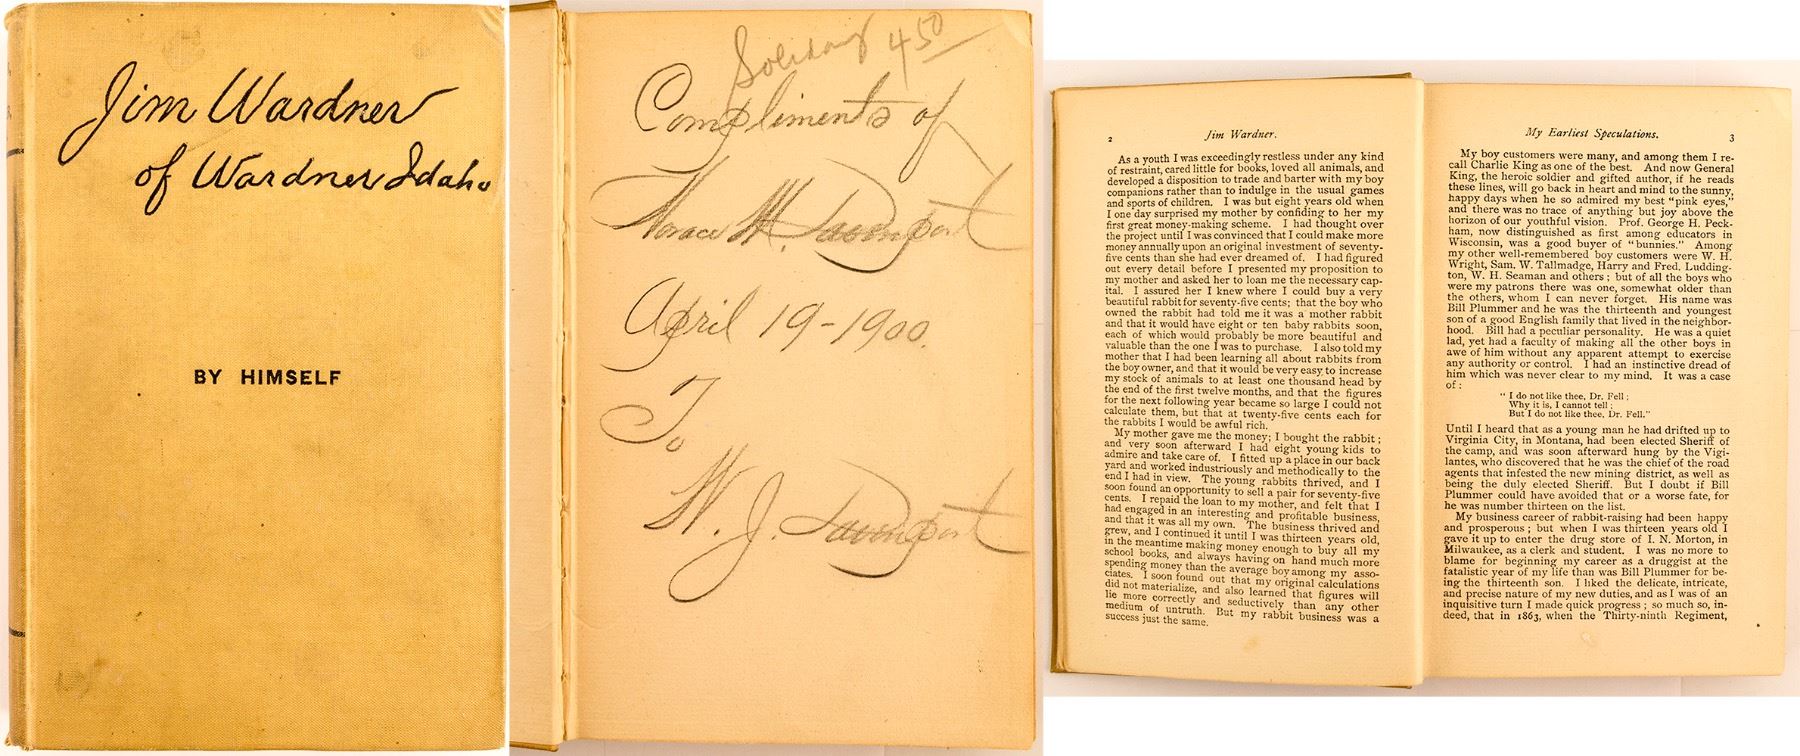 Jim Wardner
of Wardner Idaho
BY HIMSELF
4 50
Compliments of
Horace W. Davenport
April 19-1900.
To
W. J. Davenport
2 Jim Wardner.
As a youth I was exceedingly restless under any kind
of restraint, cared little for books, loved all animals, and
developed a disposition to trade and barter with my boy
companions rather than to indulge in the usual games
and sports of children. I was but eight years old when
I one day surprised my mother by confiding to her my
first great money-making scheme. I had thought over
the project until I was convinced that I could make more
money annually upon an original investment of seventy-
five cents than she had ever dreamed of. I had figured
out every detail before I presented my proposition to
my mother and asked her to loan me the necessary cap-
ital. I assured her I knew where I could buy a very
beautiful rabbit for seventy-five cents; that the boy who
owned the rabbit had told me it was a mother rabbit
and that it would have eight or ten baby rabbits soon,
each of which would probably be more beautiful and
valuable than the one I was to purchase. I also told my
mother that I had been learning all about rabbits from
the boy owner, and that it would be very easy to increase
my stock of animals to at least one thousand head by
the end of the first twelve months, and that the figures
for the next following year became so large I could not
calculate them, but that at twenty-five cents each for
the rabbits I would be awful rich.
My mother gave me the money; I bought the rabbit;
and very soon afterward I had eight young kids to
admire and take care of. I fitted up a place in our back
yard and worked industriously and methodically to the
end I had in view. The young rabbits thrived, and I
soon found an opportunity to sell a pair for seventy-five
cents. I repaid the loan to my mother, and felt that I
had engaged in an interesting and profitable business,
and that it was all my own. The business thrived and
grew, and I continued it until I was thirteen years old,
in the meantime making money enough to buy all my
school books, and always having on hand much more
spending money than the average boy among my asso-
ciates. I soon found out that my original calculations
did not materialize, and also learned that figures will
lie more correctly and seductively than any other
medium of untruth. But my rabbit business was a
success just the same.
My Earliest Speculations. 3
My boy customers were many, and among them I re-
call Charlie King as one of the best. And now General
King, the heroic soldier and gifted author, if he reads
these lines, will go back in heart and mind to the sunny,
happy days when he so admired my best "pink eyes,"
and there was no trace of anything but joy above the
horizon of our youthful vision. Prof. George H. Peck-
ham, now distinguished as first among educators in
Wisconsin, was a good buyer of "bunnies." Among
my other well-remembered boy customers were W. H.
Wright, Sam. W. Tallmadge, Harry and Fred. Ludding-
ton, W. H. Seaman and others; but of all the boys who
were my patrons there was one, somewhat older than
the others, whom I can never forget. His name was
Bill Plummer and he was the thirteenth and youngest
son of a good English family that lived in the neighbor-
hood. Bill had a peculiar personality. He was a quiet
lad, yet had a faculty of making all the other boys in
awe of him without any apparent attempt to exercise
any authority or control. I had an instinctive dread of
him which was never clear to my mind. It was a case
of:
"I do not like thee, Dr. Fell;
Why it is, I cannot tell;
But I do not like thee, Dr. Fell."
Until I heard that as a young man he had drifted up to
Virginia City, in Montana, had been elected Sheriff of
the camp, and was soon afterward hung by the Vigi-
lantes, who discovered that he was the chief of the road
agents that infested the new mining district, as well as
being the duly elected Sheriff. But I doubt if Bill
Plummer could have avoided that or a worse fate, for
he was number thirteen on the list.
My business career of rabbit-raising had been happy
and prosperous; but when I was thirteen years old I
gave it up to enter the drug store of I. N. Morton, in
Milwaukee, as a clerk and student. I was no more to
blame for beginning my career as a druggist at the
fatalistic year of my life than was Bill Plummer for be-
ing the thirteenth son. I liked the delicate, intricate,
and precise nature of my new duties, and as I was of an
inquisitive turn I made quick progress; so much so, in-
deed, that in 1863, when the Thirty-ninth Regiment,